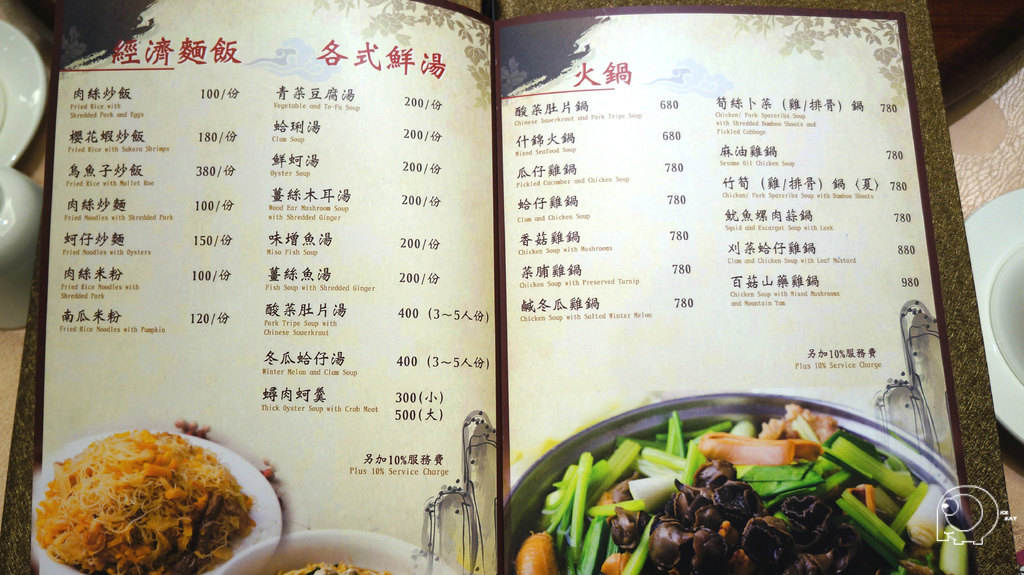 經濟麵飯
肉絲炒飯 100/份
Fried Rice with
Shredded Pork and Eggs
櫻花蝦炒飯 180/份
Fried Rice with Sakura Shrimps
烏魚子炒飯 380/份
Fried Rice with Mullet Roe
肉絲炒麵 100/份
Fried Noodles with Shredded Pork
蚵仔炒麵 150/份
Fried Noodles with Oysters
肉絲米粉 100/份
Fried Rice Noodles with
Shredded Pork
南瓜米粉 120/份
Fried Rice Noodles with Pumpkin
各式鮮湯
青菜豆腐湯 200/份
Vegetable and To-Fu Soup
蛤琍湯 200/份
Clam Soup
鮮蚵湯 200/份
Oyster Soup
薑絲木耳湯 200/份
Wood Ear Mushroom Soup
with Shredded Ginger
味增魚湯 200/份
Miso Fish Soup
薑絲魚湯 200/份
Fish Soup with Shredded Ginger
酸菜肚片湯 400 (3～5人份)
Pork Tripe Soup with
Chinese Sauerkraut
冬瓜蛤仔湯 400 (3～5人份)
Winter Melon and Clam Soup
蟳肉蚵羹 300(小)
Thick Oyster Soup with Crab Meat
500(大)
另加10%服務費
Plus 10% Service Charge
火鍋
酸菜肚片鍋 680
Chinese Sauerkraut and Pork Tripe Soup
什錦火鍋 680
Mixed Seafood Soup
瓜仔雞鍋 780
Pickled Cucumber and Chicken Soup
蛤仔雞鍋 780
Clam and Chicken Soup
香菇雞鍋 780
Chicken Soup with Mushrooms
菜脯雞鍋 780
Chicken Soup with Preserved Turnip
鹹冬瓜雞鍋 780
Chicken Soup with Salted Winter Melon
筍絲卜菜（雞/排骨）鍋 780
Chicken/ Pork Spareribs Soup
with Shredded Bamboo Shoots and
Pickled Cabbage
麻油雞鍋 780
Sesame Oil Chicken Soup
竹筍（雞/排骨）鍋〈夏〉 780
Chicken/ Pork Spareribs Soup with Bamboo Shoots
魷魚螺肉蒜鍋 780
Squid and Escargot Soup with Leek
刈菜蛤仔雞鍋 880
Clam and Chicken Soup with Leaf Mustard
百菇山藥雞鍋 980
Chicken Soup with Mixed Mushrooms
and Mountain Yam
另加10%服務費
Plus 10% Service Charge